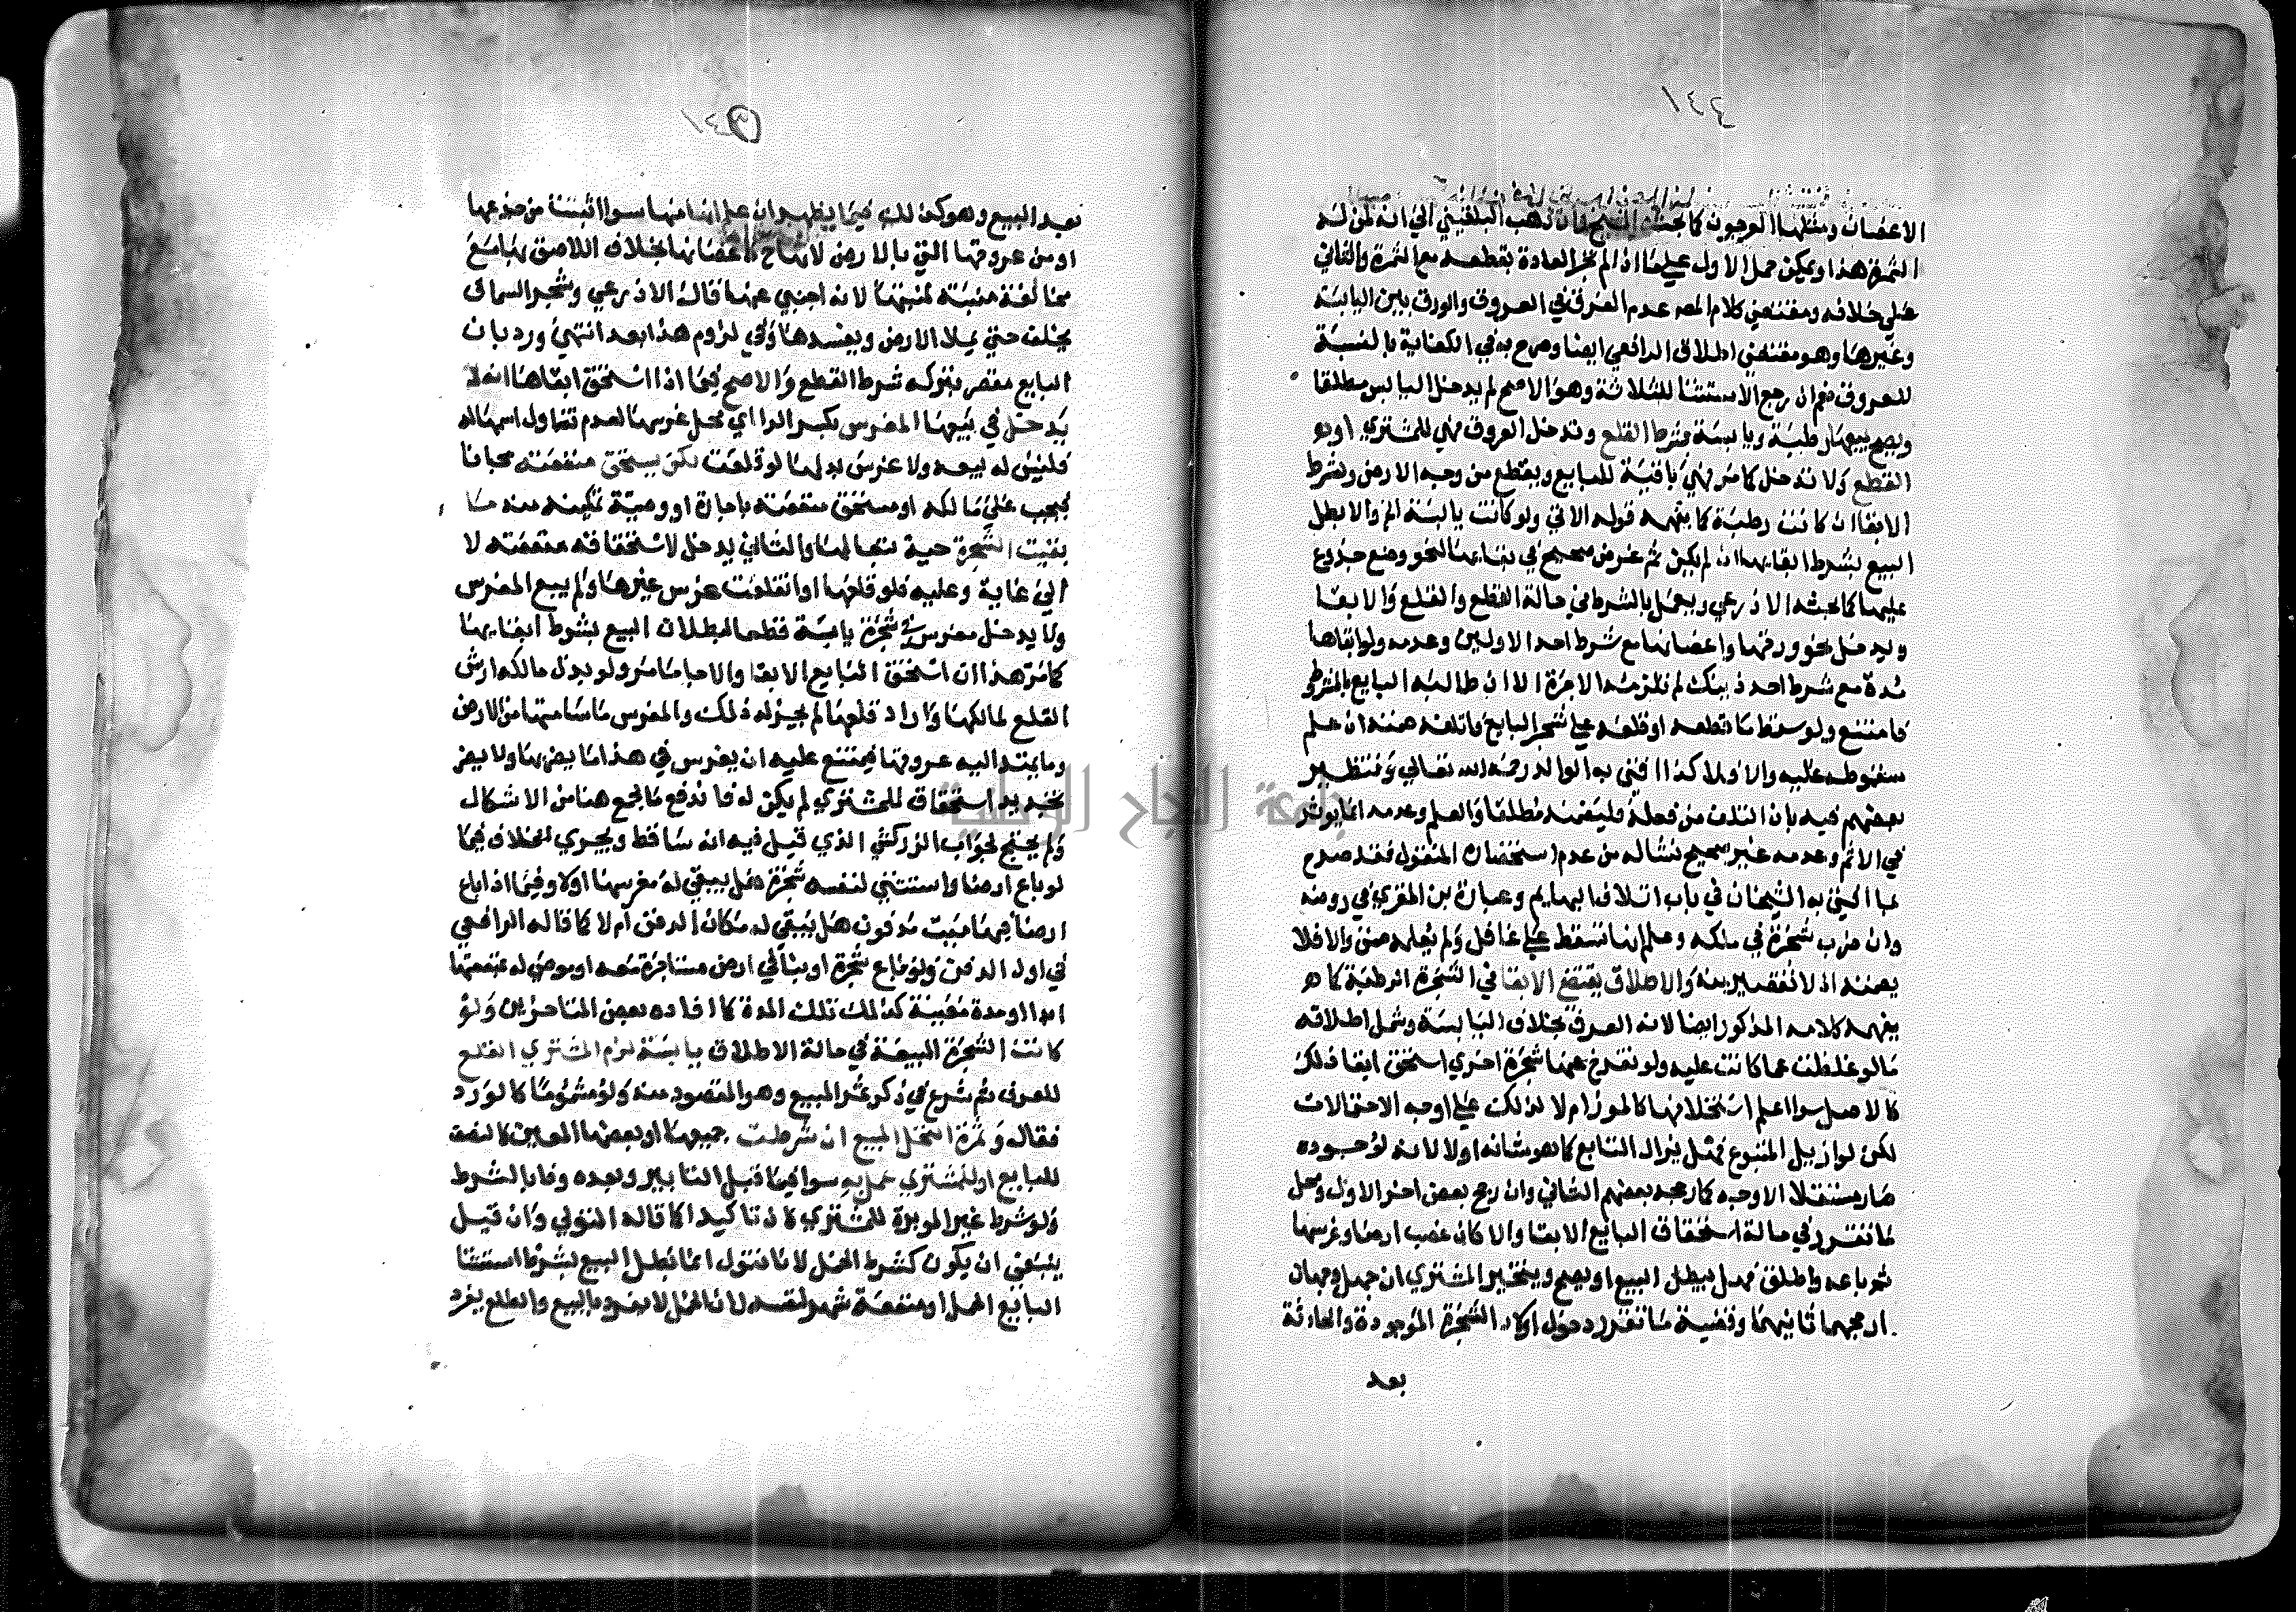 الاغصان ومثلها العرجون كما بحثه الشيخ وان ذهب البلقيني الي انه لمن له
الثمرة هذا ويمكن حمل الاول علي ما اذا لم تجر العادة بقطعه مع الثمرة والثاني
علي خلافه ومقتضي كلام المص عدم الفرق في العروق والورق بين اليابسة
وغيرها وهو مقتضي اطلاق الرافعي ايضا وصرح به في الكفاية بالنسبة
للعروق نعم ان رجع الاستثنا للثلاثة وهو الاصح لم يدخل اليابس مطلقا
ويصح بيعها رطبة ويابسة بشرط القلع وتدخل العروق فهي للمشتري او بو
القطع ولا تدخل كما مر فهي باقية للبايع ويقطع من وجه الارض وبشرط
الابقا ان كانت رطبة كما يفهمه قوله الاتي ولو كانت يابسة الخ والا بطل
البيع بشرط ابقايها ان لم يكن ثم غرض صحيح في بقايها لنحو وضع جذوع
عليها كما بحثه الاذرعي ويعمل بالشرط في حالة القطع والقلع والابقا
ويدخل نحو ورقها واغصانها مع شرط احد الاولين وعدمه ولو ابقاها
مدة مع شرط احد ذينك لم تلزمه الاجرة الا ان طالبه البايع بالمشروط
فامتنع ولو سقط ما قطعه او قلعه علي شجر البايع فاتلفه ضمنه ان علم
سقوطه عليه والا فلا كذا افتي به الوالد رحمه الله تعالي وتنظير
بعضهم فيه بان التلف من فعله فليضمنه مطلقا والعلم وعدمه انما يوثر
في الاثم وعدمه غير صحيح نشاله من عدم استحضار المنقول فقد صرح
بما افتي به الشيخان في باب اتلاف البهايم وعبارة بن المقري في روضه
وان ضرب شجرة في ملكه وعلم انها تسقط علي غافل ولم يعلمه ضمن والا فلا
يضمنه اذ لا تقصير منه والاطلاق يقتضي الابقا في الشجرة الرطبة كما هو
يفهمه كلامه المذكور ايضا لانه العرف بخلاف اليابسة وشمل اطلاقه
ما لو غلظت عما كانت عليه ولو تفرخ عنها شجرة اخري استحق ابقا ذلك
كالاصل سوا اعلم استخلافها كالموز ام لا لذلك علي اوجه الاحتمالات
لكن لو ازيل المتبوع فهل يزال التابع كما هو شانه اولا لانه لوجوده
صار مستقلا الاوجه كما رجحه بعضهم الثاني وان رجح بعض اخر الاول ومحل
ما تقرر في حالة استحقاق البايع الابقا والا كان غصب ارضا وغرسها
ثم باعه واطلق فهل يبطل البيع او يصح ويتخير المشتري ان جهل وجهان
ارجحهما ثانيهما وقضية ما تقرر دخول اولاد الشجرة الموجودة والحادثة
بعد
بعد البيع وهو كذلك فيما يظهر ان علم انها منها سوا انبتت من جذعها
او من عروقها التي بالارض لانها كاغصانها بخلاف اللاصق بها مع
مخالفة منبته لمنبتها لانه اجنبي عنها قال الاذرعي وشجر السماق
يخلف حتي يملا الارض ويفسدها وفي لزوم هذا بعد انتهي ورد بان
البايع مقصر بتركه شرط القطع والاصح فيما اذا استحق ابقاها انه لا
يدخل في بيعها المغرس بكسر الرا اي محل غرسها لعدم تناول اسمها له
فليس له بيعه ولا غرس بدلها لو قلعت لكن يستحق منفعته مجانا
فيجب علي مالكه او مستحق منفعته باجارة او وصية تمكينه منه ما
بقيت الشجرة حية تبعا لها والثاني يدخل لاستحقاقه منفعته لا
الي غاية وعليه فلو قلعها او انقلعت غرس غيرها ولم يبع المغرس
ولا يدخل مغرس في شجرة يابسة قطعا لبطلان البيع بشرط ابقايها
كما مر هذا ان استحق البايع الابقا والا جا ما مر ولو بذل مالكه ارش
القلع لمالكها واراد قلعها لم يجز له ذلك والمغرس ما سامتها من الارض
وما يمتد اليه عروقها فيمتنع عليه ان يغرس في هذا ما يضر بها ولا يضر
تجديد استحقاق للمشتري لم يكن له فاندفع ما لجمع هنا من الاشكال
ولم يحتج لجواب الزركشي الذي قيل فيه انه ساقط ويجري الخلاف فيما
لو باع ارضا واستثني لنفسه شجرة هل يبقي له مغرسها اولا وفيما اذا باع
ارضا فيها ميت مدفون هل يبقي له مكان الدفن ام لا كما قاله الرافعي
في اول الدفن ولو باع شجرة او بنا في ارض مستاجرة معه او موصي له بمنفعتها
ابدا او مدة معينة كذلك تلك المدة كما افاده بعض المتاخرين ولو
كانت الشجرة المبيعة في حالة الاطلاق يابسة لزم المشتري القلع
للعرف ثم شرع في ذكر ثمر المبيع وهو المقصود منه ولو مشموما كالورد
فقال وثمرة النخل المبيع ان شرطت جميعها او بعضها المعين كالنصف
للبايع او للمشتري عمل به سوا فيما قبل التابير وبعده وفا بالشرط
ولو شرط غير الموبرة للمشتري كان تاكيدا كما قاله المتولي وان قيل
ينبغي ان يكون كشرط الحمل لانا نقول انما بطل البيع بشرط استثنا
البايع الحمل او منفعة شهر لنفسه لان الحمل لا يفرد بالبيع والطلع يفرد